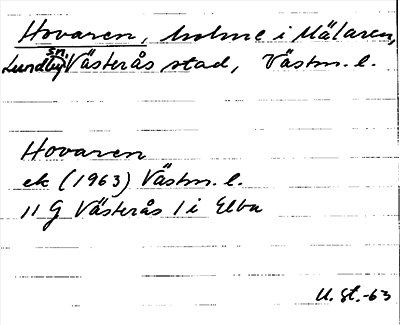 Hovaren, holme i Mälaren,
sn.
Lundby, Västerås stad, Västm. l.
Hovaren
ek (1963) Västm. l.
11 G Västerås 1 i Elba
U. St.-63